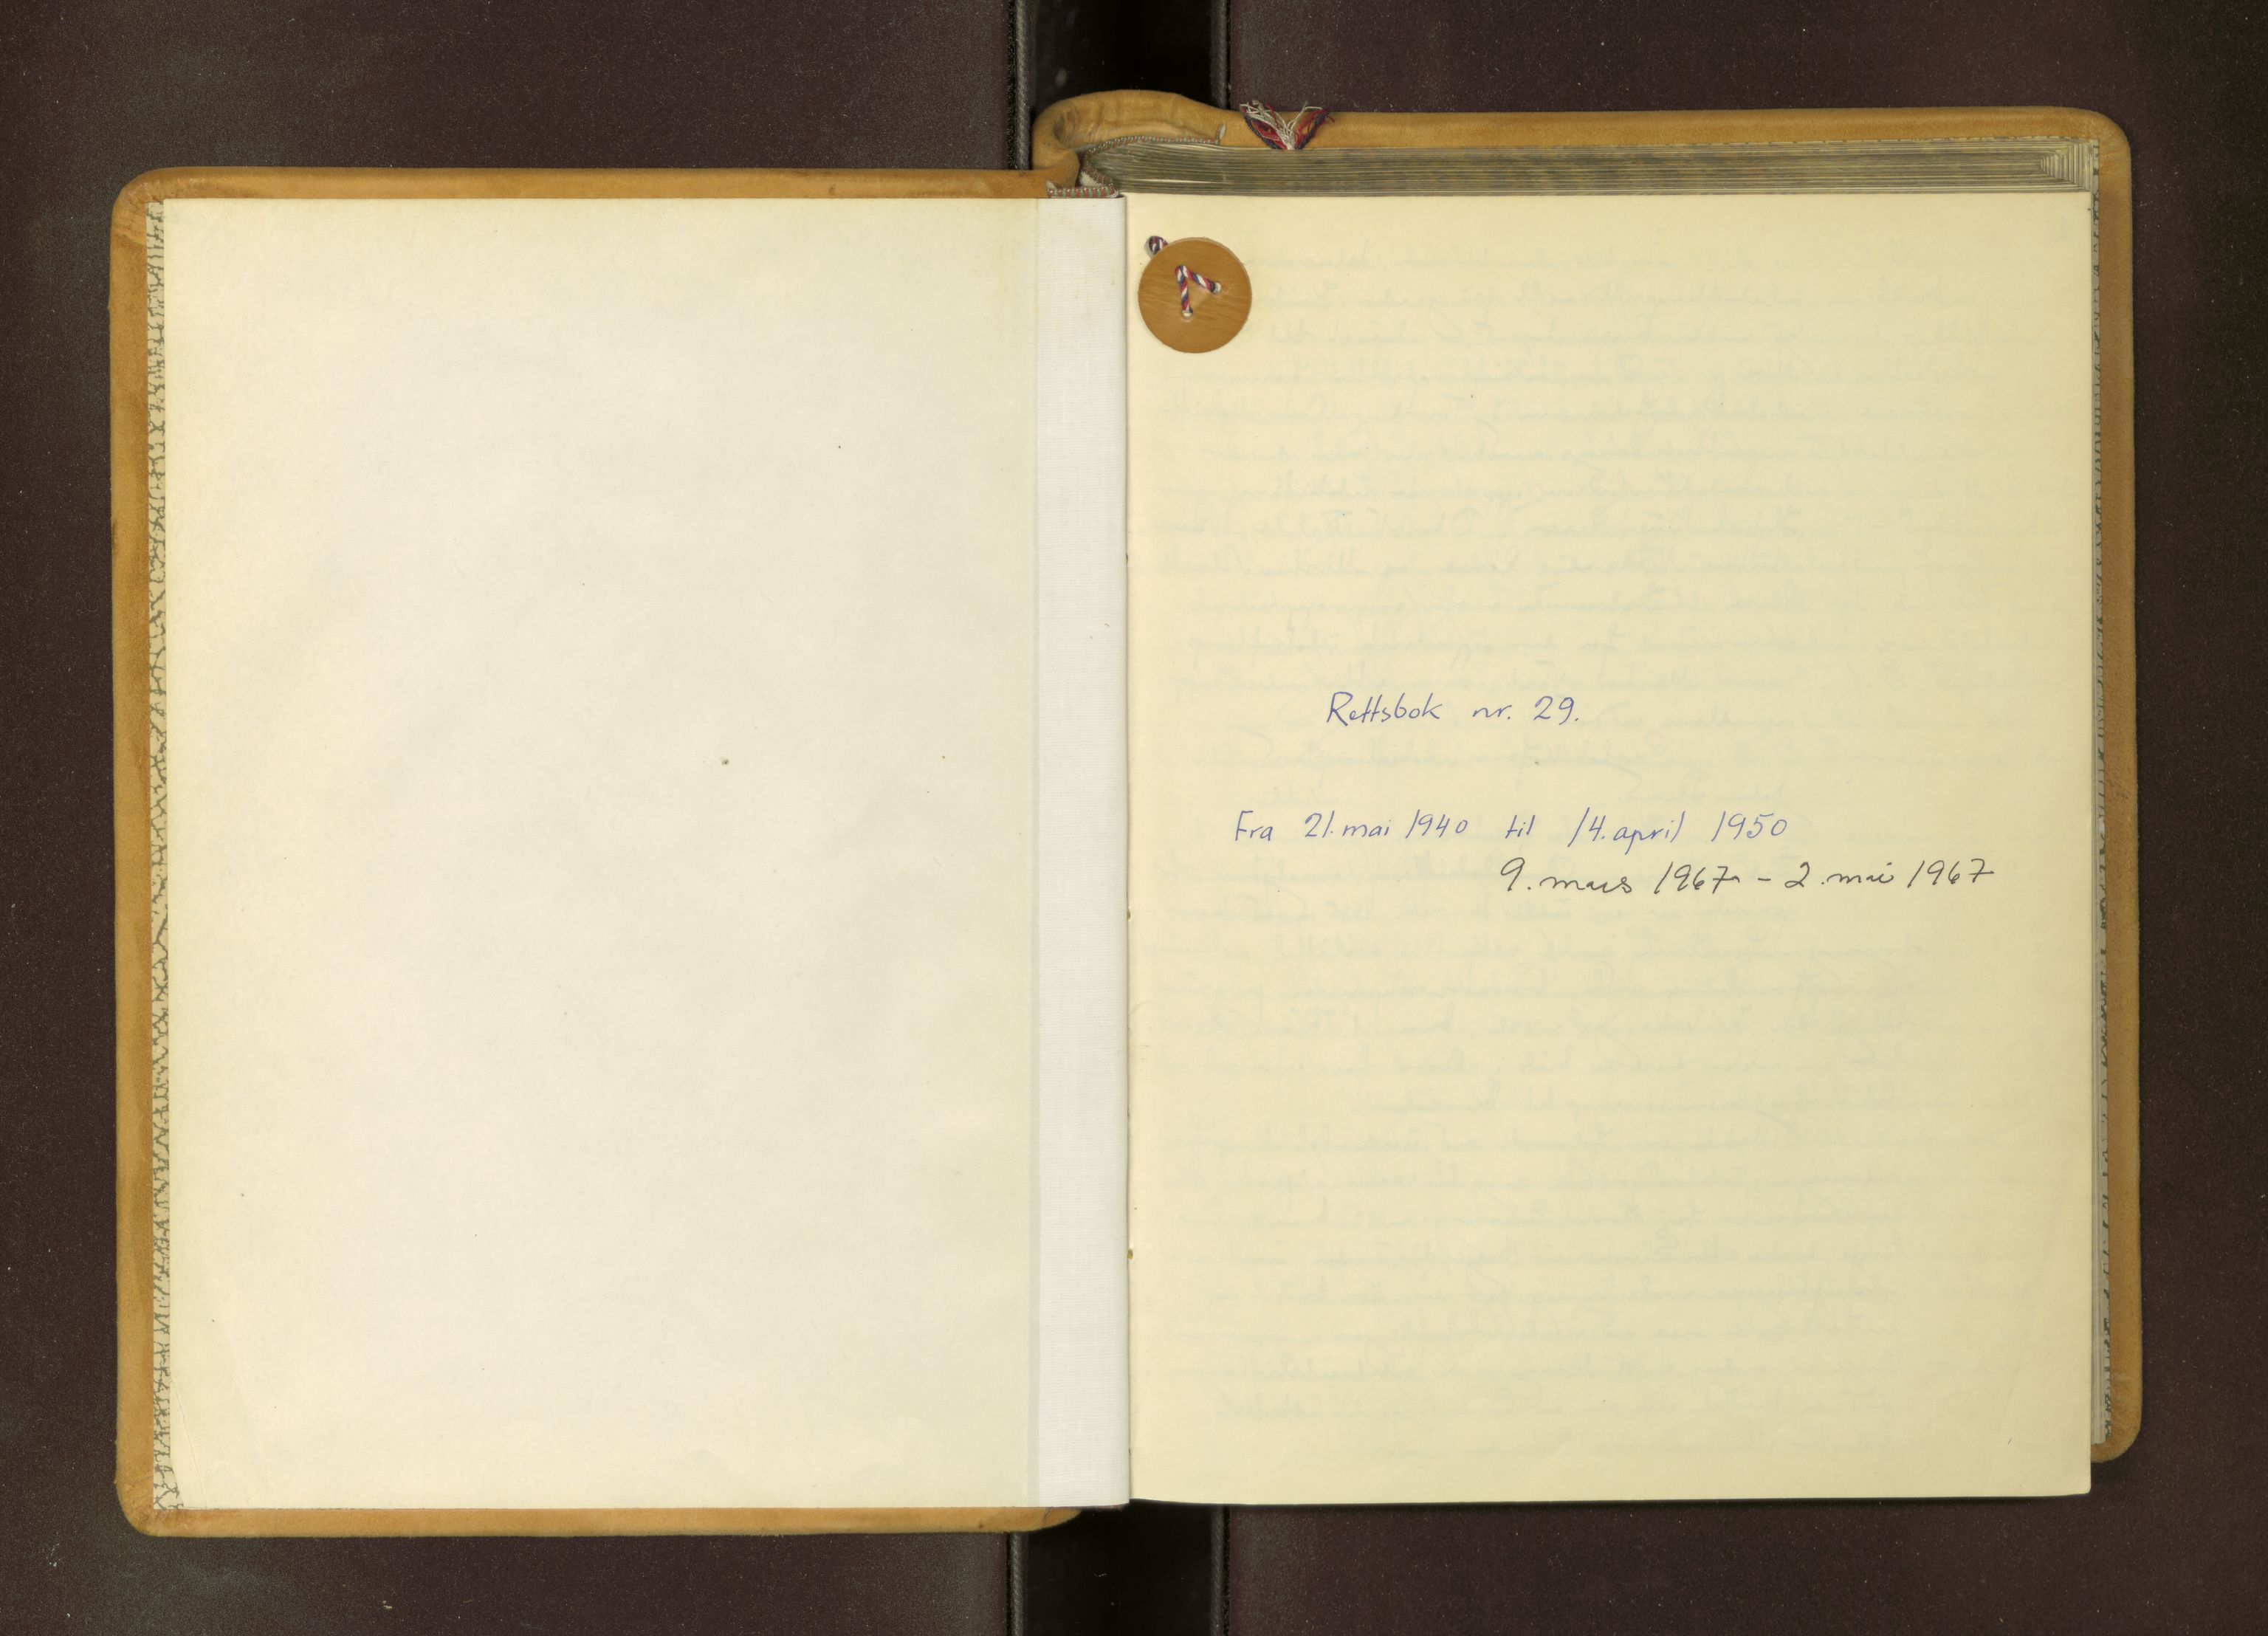 Rettsbok nr. 29.
Fra 21. mai 1940 til 14. april 1950
9. mars 1967 - 2. mai 1967